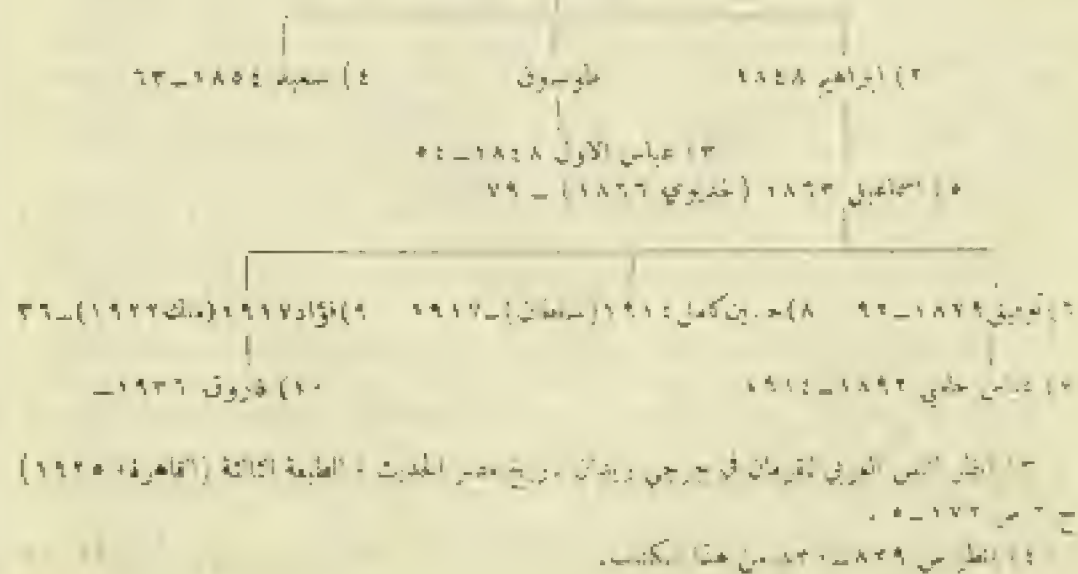 ٢) ابراهيم ١٨٤٨ طوسون ٤) سعيد ١٨٥٤ـ٦٣
٣) عباس الاول ١٨٤٨ـ٥٤
٥) اسماعيل ١٨٦٣ (خديوي ١٨٦٦) ـ ٧٩
٦) توفيق ١٨٧٩ـ٩٢ ٨) حسين كامل ١٩١٤ (سلطان)ـ١٩١٧ ٩) فؤاد ١٩١٧ (ملك ١٩٢٢)ـ٣٦
٧) عباس حلمي ١٨٩٢ـ١٩١٤ ١٠) فاروق ١٩٣٦ـ
٣) انظر النص العربي للفرمان في جرجي زيدان تاريخ مصر الحديث ، الطبعة الثالثة (القاهرة، ١٩٢٥)
ج ٢ ص ١٧٢ـ٥ .
٤) انظر ص ٨٢٩ـ٨٣٠ من هذا الكتاب.